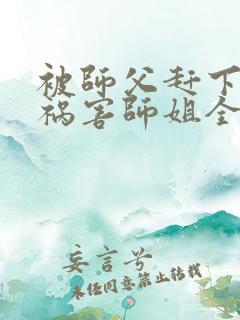 被師父赶下
祸害師姐全
妄言兮
未经同意禁止转载